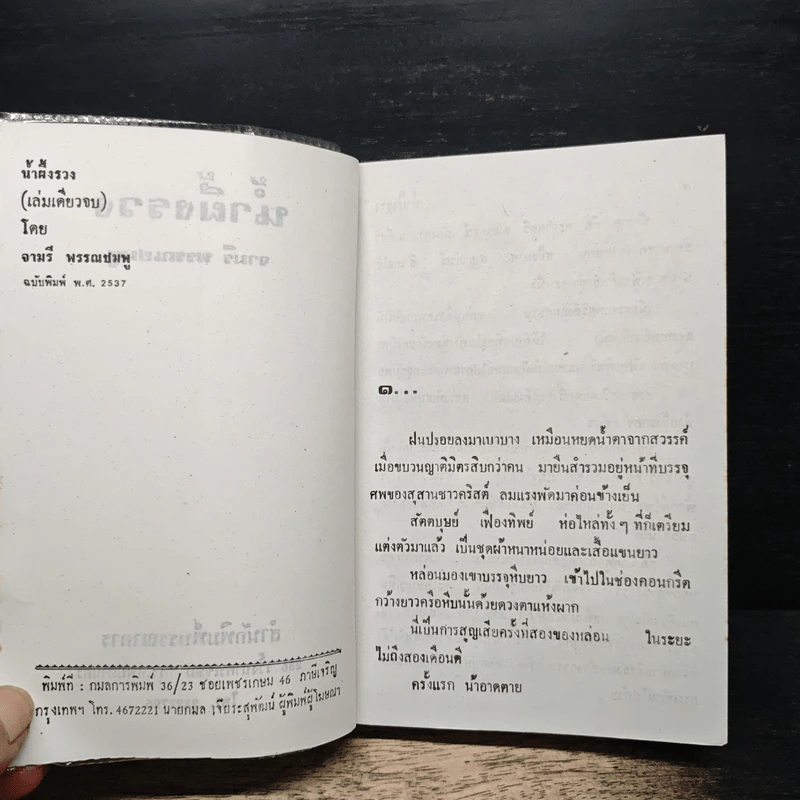 น้ำผึ้งรวง
(เล่มเดียวจบ)
โดย
จามรี พรรณชมพู
ฉบับพิมพ์ พ.ศ. 2537
พิมพ์ที่ : กมลการพิมพ์ 36/23 ซอยเพชรเกษม 46 ภาษีเจริญ
กรุงเทพฯ โทร. 4672221 นายกมล เจียระสุพัฒน์ ผู้พิมพ์ผู้โฆษณา
๑...
ฝนปรอยลงมาเบาบาง เหมือนหยดน้ำตาจากสวรรค์
เมื่อขบวนญาติมิตรสิบกว่าคน มายืนสำรวมอยู่หน้าที่บรรจุ
ศพของสุสานชาวคริสต์ ลมแรงพัดมาค่อนข้างเย็น
สัตตบุษย์ เฟื่องทิพย์ ห่อไหล่ทั้ง ๆ ที่ก็เตรียม
แต่งตัวมาแล้ว เป็นชุดผ้าหนาหน่อยและเสื้อแขนยาว
หล่อนมองเขาบรรจุหีบยาว เข้าไปในช่องคอนกรีต
กว้างยาวครือหีบนั้นด้วยดวงตาแห้งผาก
นี่เป็นการสูญเสียครั้งที่สองของหล่อน ในระยะ
ไม่ถึงสองเดือนดี
ครั้งแรก น้าอาดตาย